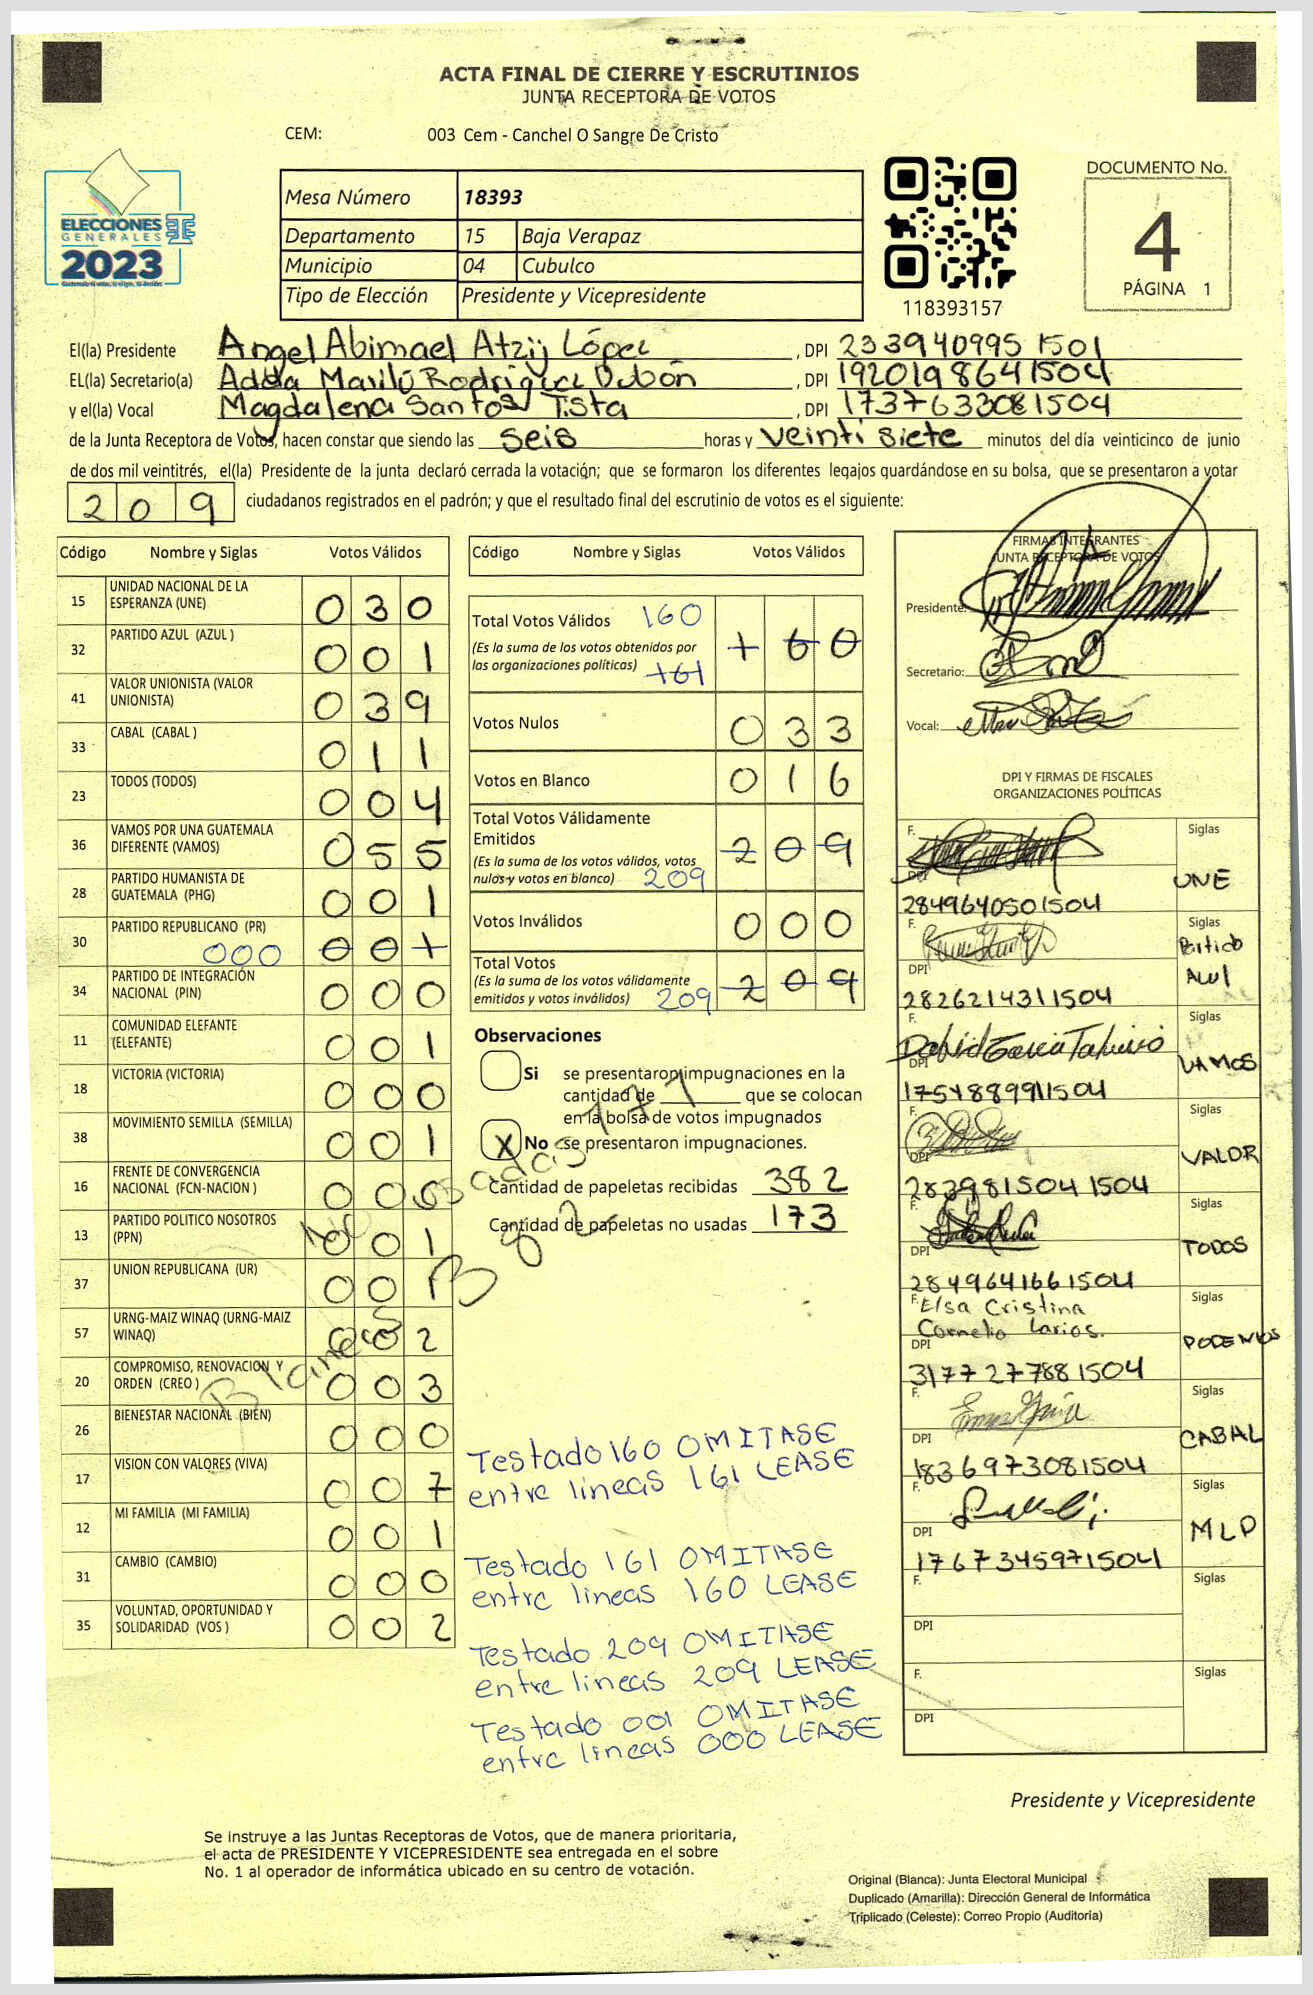 ACTA FINAL DE CIERRE Y ESCRUTINIOS
JUNTA RECEPTORA DE VOTOS
CEM: 003 Cem - Canchel O Sangre De Cristo
ELECCIONES
GENERALES
2023
Mesa Número 18393
Departamento 15 Baja Verapaz
Municipio 04 Cubulco
Tipo de Elección Presidente y Vicepresidente
118393157
DOCUMENTO No.
4
PÁGINA 1
El(la) Presidente Angel Abimael Atzij López, DPI 233940995 1501
EL(la) Secretario(a) Adda Mariló Rodriguez Dubón, DPI 1920198641504
y el(la) Vocal Magdalena Santos Tista, DPI 1737633081504
de la Junta Receptora de Votos, hacen constar que siendo las seis horas y veinti siete minutos del día veinticinco de junio
de dos mil veintitrés, el(la) Presidente de la junta declaró cerrada la votación; que se formaron los diferentes legajos quardándose en su bolsa, que se presentaron a votar
209 ciudadanos registrados en el padrón; y que el resultado final del escrutinio de votos es el siguiente:
Código Nombre y Siglas Votos Válidos
15 UNIDAD NACIONAL DE LA ESPERANZA (UNE) 030
32 PARTIDO AZUL (AZUL ) 001
41 VALOR UNIONISTA (VALOR UNIONISTA) 039
33 CABAL (CABAL ) 011
23 TODOS (TODOS) 004
36 VAMOS POR UNA GUATEMALA DIFERENTE (VAMOS) 055
28 PARTIDO HUMANISTA DE GUATEMALA (PHG) 001
30 PARTIDO REPUBLICANO (PR) 000 001
34 PARTIDO DE INTEGRACIÓN NACIONAL (PIN) 000
11 COMUNIDAD ELEFANTE (ELEFANTE) 001
18 VICTORIA (VICTORIA) 000
38 MOVIMIENTO SEMILLA (SEMILLA) 001
16 FRENTE DE CONVERGENCIA NACIONAL (FCN-NACION )
13 PARTIDO POLITICO NOSOTROS (PPN) 001
37 UNION REPUBLICANA (UR)
57 URNG-MAIZ WINAQ (URNG-MAIZ WINAQ) 002
20 COMPROMISO, RENOVACION Y ORDEN (CREO ) 003
26 BIENESTAR NACIONAL (BIEN) 000
17 VISION CON VALORES (VIVA) 007
12 MI FAMILIA (MI FAMILIA) 001
31 CAMBIO (CAMBIO) 000
35 VOLUNTAD, OPORTUNIDAD Y SOLIDARIDAD (VOS ) 002
Código Nombre y Siglas Votos Válidos
Total Votos Válidos 160 160
(Es la suma de los votos obtenidos por
las organizaciones políticas) 161
Votos Nulos 033
Votos en Blanco 016
Total Votos Válidamente
Emitidos 209
(Es la suma de los votos válidos, votos
nulos y votos en blanco) 209
Votos Inválidos 000
Total Votos
(Es la suma de los votos válidamente
emitidos y votos inválidos) 209 209
Observaciones
Si se presentaron impugnaciones en la
cantidad de ______ que se colocan
en la bolsa de votos impugnados
X No se presentaron impugnaciones.
Cantidad de papeletas recibidas 382
Cantidad de papeletas no usadas 173
Testado 160 OMITASE
entre lineas 161 LEASE
Testado 161 OMITASE
entre lineas 160 LEASE
Testado 209 OMITASE
entre lineas 209 LEASE
Testado 001 OMITASE
entre lineas 000 LEASE
FIRMAS INTEGRANTES
JUNTA RECEPTORA DE VOTOS
Presidente:
Secretario:
Vocal:
DPI Y FIRMAS DE FISCALES
ORGANIZACIONES POLÍTICAS
F. Siglas
DPI 2849640501504 UNE
F. Siglas
DPI 2826214311504 Partido Azul
F. David Garcia Siglas
DPI 1754889911504 VAMOS
F. Siglas
DPI 2839815041504 VALOR
F. Siglas
DPI 2849641661504 TODOS
F. Elsa Cristina Cornelio Larios. Siglas
DPI 3177277881504 PODEMOS
F. Siglas
DPI 1836973081504 CABAL
F. Siglas
DPI 1767345971504 MLP
F. Siglas
DPI
F. Siglas
DPI
Presidente y Vicepresidente
Se instruye a las Juntas Receptoras de Votos, que de manera prioritaria,
el acta de PRESIDENTE Y VICEPRESIDENTE sea entregada en el sobre
No. 1 al operador de informática ubicado en su centro de votación.
Original (Blanca): Junta Electoral Municipal
Duplicado (Amarilla): Dirección General de Informática
Triplicado (Celeste): Correo Propio (Auditoría)